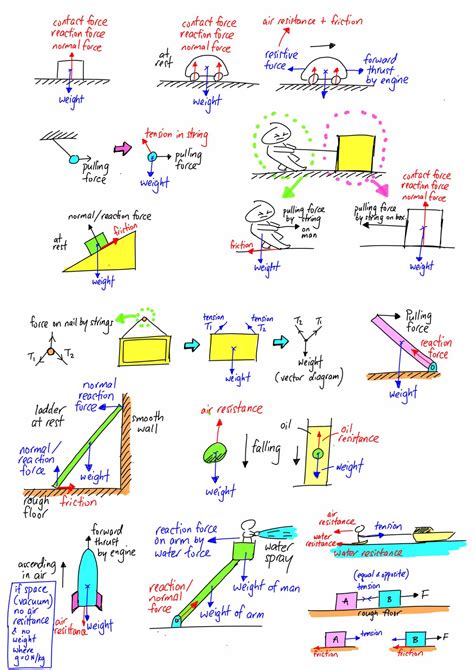 contact force
reaction force
normal force
weight
contact force
reaction force
normal force
at
rest
weight
air resistance + friction
resistive
force
forward
thrust
by engine
weight
pulling
force
tension in string
pulling
force
weight
pulling force
by string
on
man
friction
weight
contact force
reaction force
normal force
pulling force
by string on box
weight
normal/reaction force
at
rest
friction
weight
force on nail by strings
T1
T2
tension
T1
tension
T2
weight
T2
T1
weight
(vector diagram)
Pulling
force
reaction
force
weight
normal
reaction
force
ladder
at rest
smooth
wall
normal/
reaction
force
weight
rough
floor
friction
air resistance
falling
weight
oil
oil
resistance
weight
forward
thrust
by engine
ascending
in air
if space
(vacuum)
no air
resistance
& no
weight
where
g=0N/kg
air
resistance
weight
reaction force
on arm by
water force
water
spray
weight of man
reaction/
normal
force
weight of arm
air
resistance
tension
water
resistance
water resistance
(equal & opposite)
tension
A
B
F
rough floor
tension
A
B
F
friction
friction